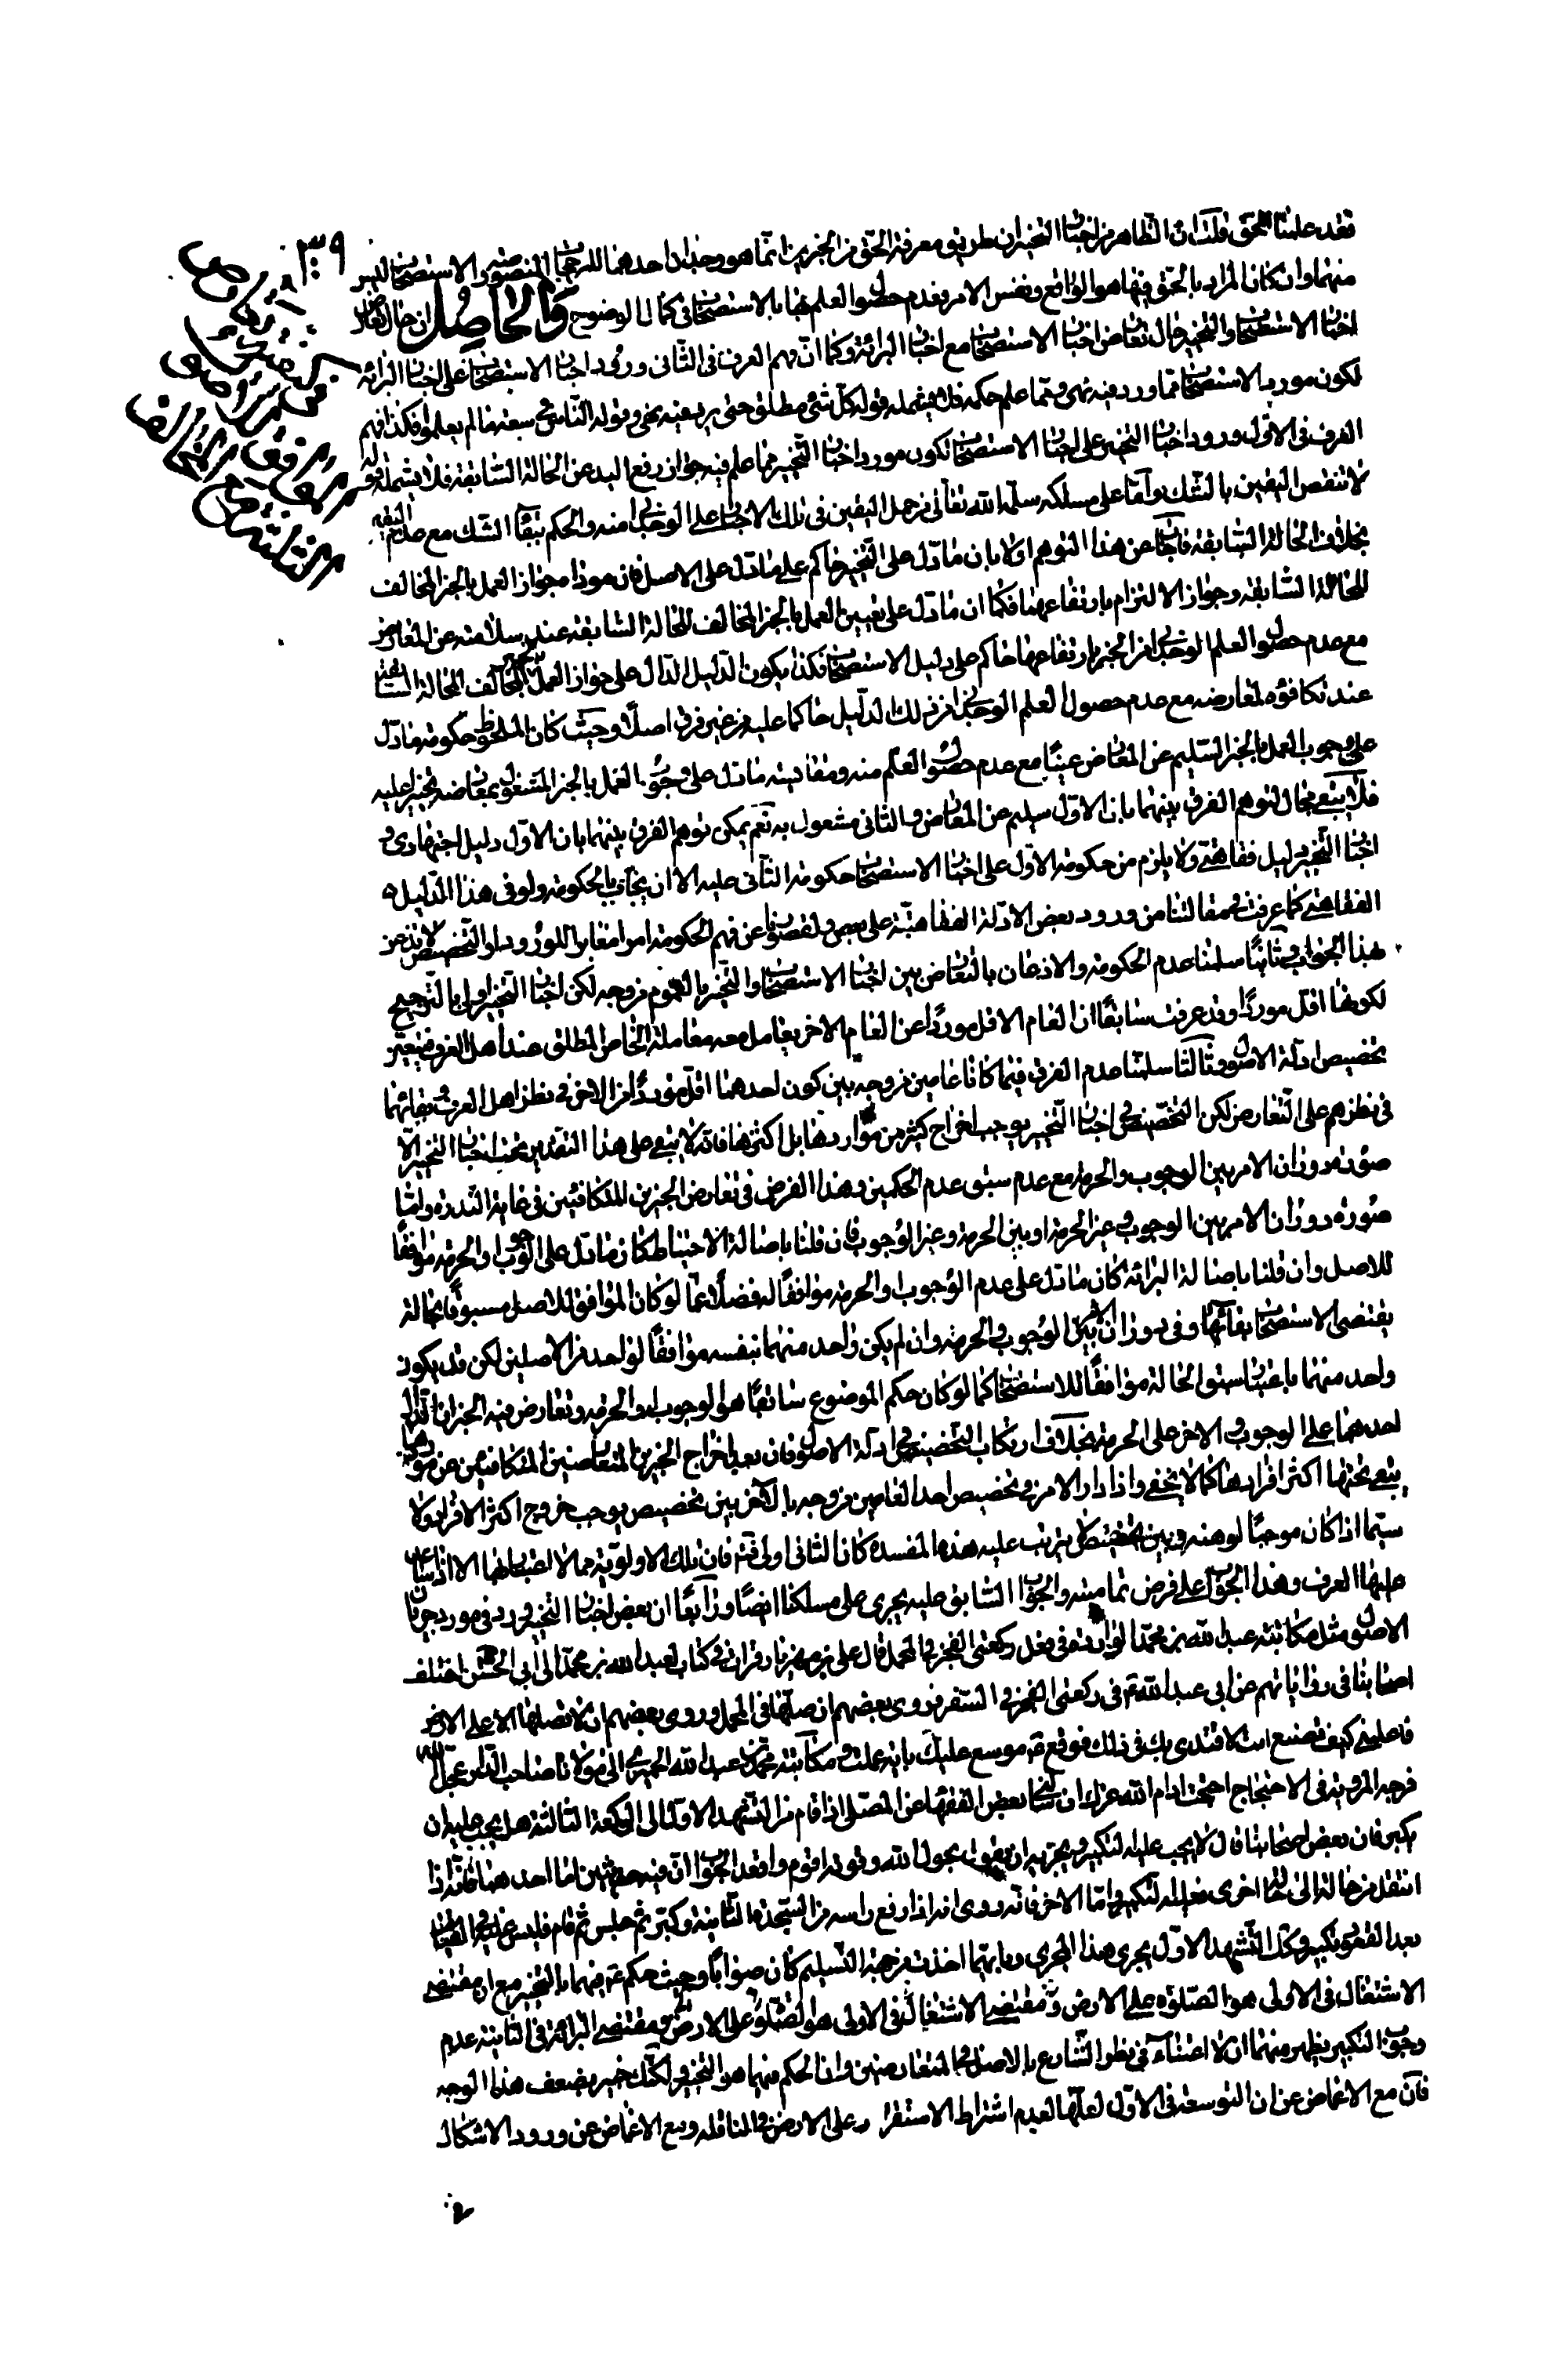 ١٣٩
فقد علمنا الحق قلت ان الظاهر من اخبار التخيير ان طريق معرفة الحق من الخبرين انما هو وجدان احدهما للمرجحات المنصوصة والاستصحاب ليس
منهما وان كان المراد بالحق فيها هو الواقع ونفس الامر فعدم حصول العلم بها بالاستصحاب في كمال الوضوح والحاصل ان حال تعارض
اخبار الاستصحاب والتخيير حال تعارض اخبار الاستصحاب مع اخبار البرائة وكما ان فهم العرف في الثاني ورود اخبار الاستصحاب على اخبار البرائة
لكون مورد الاستصحاب مما ورد فيه نهى ومما علم حكمه فلا يشمله قوله كل شئ مطلق حتى يرد فيه نهى وقوله الناس في سعة ما لم يعلموا فكذا فهم
العرف في الاول ورود اخبار التخيير على اخبار الاستصحاب لكون مورد اخبار التخيير مما علم فيه جواز رفع اليد عن الحالة السابقة فلا يشمله قوله
لا تنقض اليقين بالشك واما على مسلكه سلمه الله تعالى من حمل اليقين في تلك الاخبار على الوجداني منه والحكم ببقاء الشك مع عدم اليقين
بخلاف الحالة السابقة فاجاب عن هذا التوهم اولا بان ما دل على التخيير حاكم على ما دل على الاصل فان مودا ه جواز العمل بالخبر المخالف
للحالة السابقة وجواز الالتزام بارتفاعها فكما ان ما دل على تعيين العمل بالخبر المخالف للحالة السابقة عند سلامته عن المعارض
مع عدم حصول العلم الوجداني من الخبر بارتفاعها حاكم على دليل الاستصحاب فكذا يكون الدليل الدال على جواز العمل بالخبر المخالف للحالة السابقة
عند تكافؤه لمعارضه مع عدم حصول العلم الوجداني من ذلك الدليل حاكما عليه من غير فرق اصلا وحيث كان الملحوظ حكومة ما دل
على وجوب العمل بالخبر السليم عن المعارض عينا مع عدم حصول العلم منه ومقايسة ما دل على وجوب العمل بالخبر المشغول بمعارضه تخييرا عليه
فلا يبقى مجال لتوهم الفرق بينهما بان الاول سليم عن المعارض والثاني مشغول به نعم يمكن توهم الفرق بينهما بان الاول دليل اجتهادى و
اخبار التخيير دليل فقاهتى ولا يلزم من حكومة الاول على اخبار الاستصحاب حكومة الثاني عليه الا ان يجاب بالحكومة ولو في هذا الدليل
الفقاهتى كما عرفت في مقالتنا من ورود بعض الادلة الفقاهية على بعض ولقصورنا عن فهم الحكومة امرا مغايرا للورود او التخصيص لا نذعن
هذا الجواب وثانيا سلمنا عدم الحكومة والاذعان بالتعارض بين اخبار الاستصحاب والتخيير بالعموم من وجه لكن اخبار التخيير اولى بالترجيح
لكونها اقل موردا وقد عرفت سابقا ان العام الاقل موردا عن العام الاخر يعامل معه معاملة الخاص المطلق عند اهل العرف فيتعين
تخصيص ادلة الاصول وثالثا سلمنا عدم الفرق فيما كانا عامين من وجه بين كون احدهما اقل موردا من الاخر في نظر اهل العرف وبقائهما
في نظرهم على التعارض لكن التخصيص في اخبار التخيير يوجب اخراج كثير من مواردها بل اكثرها فانه لا يبقى على هذا التقدير تحت اخبار التخيير الا
صورة دوران الامر بين الوجوب والحرمة مع عدم سبق عدم الحكمين وهذا الفرض في تعارض الخبرين المتكافئين في غاية الندرة واما
صورة دوران الامر بين الوجوب وغير الحرمة او بين الحرمة وغير الوجوب فان قلنا باصالة الاحتياط كان ما دل على الوجوب او الحرمة موافقا
للاصل وان قلنا باصالة البرائة كان ما دل على عدم الوجوب او الحرمة موافقا له فضلا عما لو كان الموافق للاصل مسبوقا بحالة
يقتضى الاستصحاب بقائها وفي دوران الامر بين الوجوب والحرمة وان لم يكن واحد منهما بنفسه موافقا لواحد من الاصلين لكن قد يكون
واحد منهما باعتبار سبق الحالة موافقا للاستصحاب كما لو كان حكم الموضوع سابقا هو الوجوب او الحرمة وتعارض فيه الخبران الدال
احدهما على الوجوب والاخر على الحرمة بخلاف ارتكاب التخصيص في ادلة الاصول فان بعد اخراج الخبرين المتعارضين المتكافئين عن موردها
يبقى تحتها اكثر افرادها كما لا يخفى واذا دار الامر في تخصيص احد العامين من وجه بالاخر بين تخصيص يوجب خروج اكثر الافراد ولا
سيما اذا كان موجبا لوهنه وبين تخصيص لا يترتب عليه هذه المفسدة كان الثاني اولى فتم فان تلك الاولوية مما لا اعتبار لها الا اذا ساعد
عليها العرف وهذا الجواب على فرض تماميته والجواب السابق عليه يجرى على مسلكنا ايضا ورابعا ان بعض اخبار التخيير ورد في مورد جريان
الاصول مثل مكاتبة عبد الله بن محمد الواردة في فعل ركعتى الفجر في المحمل قال على بن مهزيار قرات في كتاب لعبد الله بن محمد الى ابى الحسن اختلف
اصحابنا في رواياتهم عن ابى عبد الله ع في ركعتى الفجر في السفر فروى بعضهم ان صلها في المحمل وروى بعضهم ان لا تصلها الا على الارض
فاعلمني كيف تصنع انت لاقتدى بك في ذلك فوقع ع موسع عليك باية عملت ومكاتبة محمد بن عبد الله الحميرى الى مولانا صاحب الدار عجل الله
فرجه المروية في الاحتجاج احتجت ادام الله عزك ان تسئل بعض الفقهاء عن المصلى اذا قام من التشهد الاول الى الركعة الثالثة هل يجب عليه ان
يكبر فان بعض اصحابنا قال لا يجب عليه التكبير ويجزيه ان يقول بحول الله وقوته اقوم واقعد الجواب ان فيه حديثين اما احدهما فانه اذا
انتقل من حالة الى حالة اخرى فعليه التكبير واما الاخر فانه روى انه اذا رفع راسه من السجدة الثانية وكبر ثم جلس ثم قام فليس عليه في القيام
بعد القعود تكبير وكذا التشهد الاول يجرى هذا المجرى وبايهما اخذت من جهة التسليم كان صوابا وحيث حكم ع فيهما بالتخيير مع ان مقتضى
الاشتغال في الاولى هو الصلوة على الارض ومقتضى الاشتغال في الاولى هو الصلوة على الارض ومقتضى البرائة في الثانية عدم
وجوب التكبير يظهر منهما ان لا اعتناء في نظر الشارع بالاصل في المتعارضين وان الحكم فيهما هو التخيير ولكنك خبير بضعف هذا الوجه
فان مع الاغماض عن ان التوسعة في الاول لعلها لعدم اشتراط الاستقرار على الارض في النافلة ومع الاغماض عن ورود الاشكال